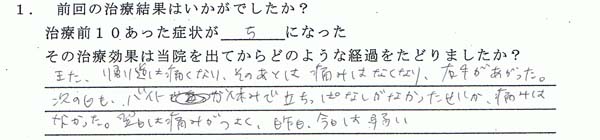 １．前回の治療結果はいかがでしたか？
治療前１０あった症状が 5 になった
その治療効果は当院を出てからどのような経過をたどりましたか？
また、帰り道は痛くなり、そのあとは痛みはなくなり、左手があがった。
次の日も、バイトが休みで立ちっぱなしがなかったせいか、痛みは
なかった。翌日は痛みがつよく、昨日、今日は弱い